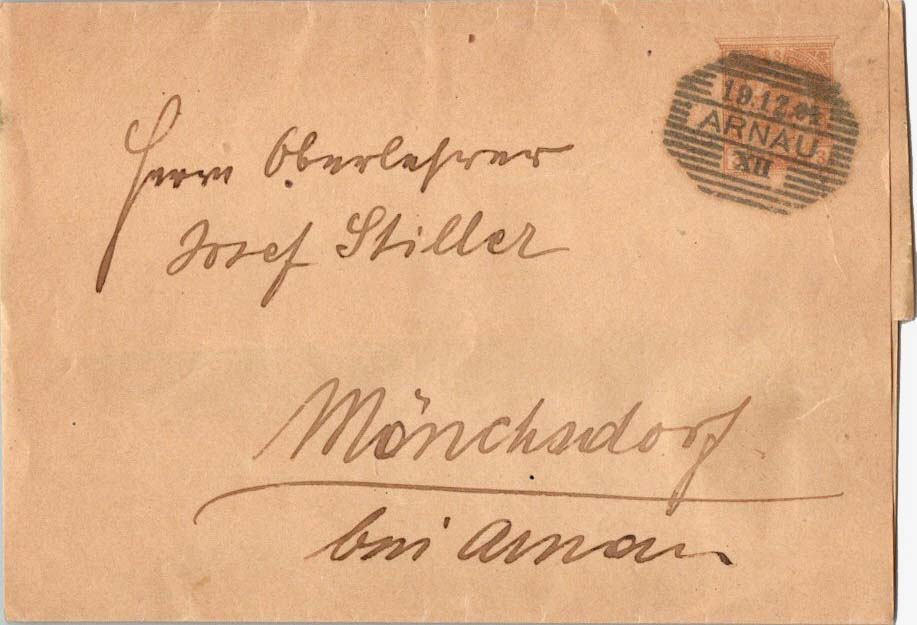 19.12.
ARNAU
XII
3
Herrn Oberlehrer
Josef Stiller
Mönchsdorf
bei Arnau